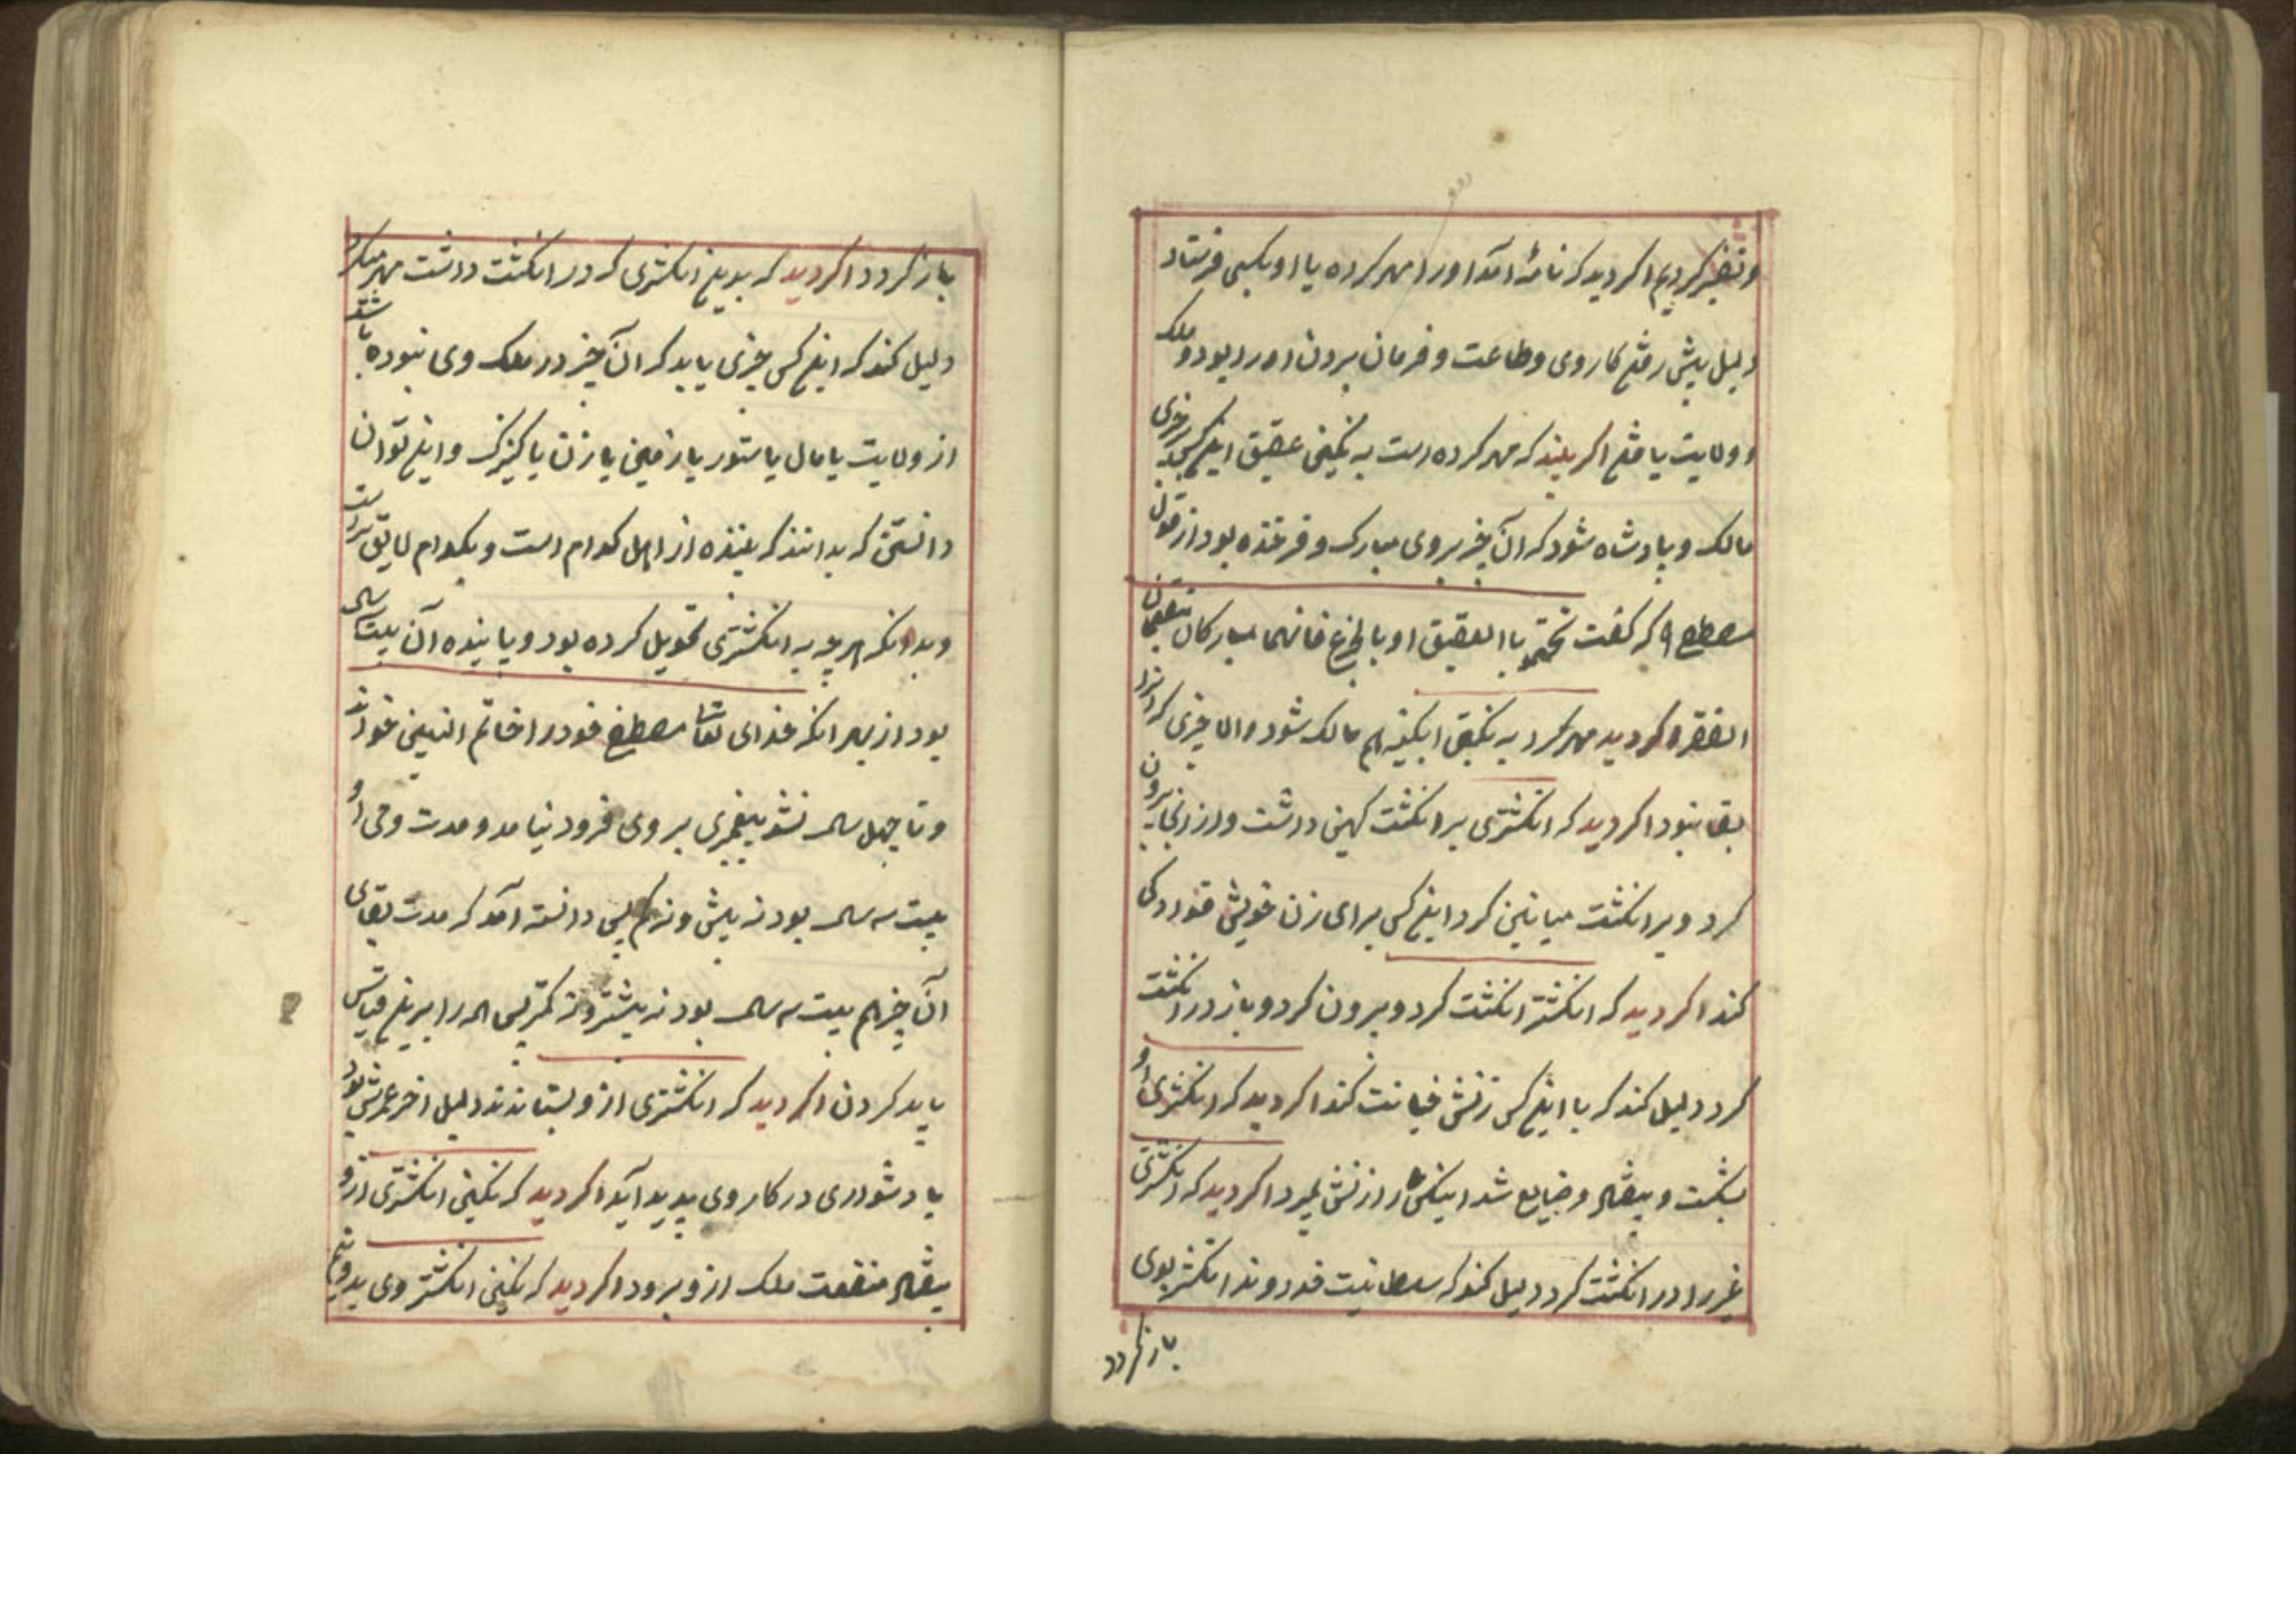 و تفسیر کردیم اکر دید که نامهٔ آمد او را مهر کرده یا او بکسی فرستاد
دلیل پیش رفتن کار وی و طاعت و فرمان بردن او را بود و ملک
و ولایت یافتن اکر بیند که مهر کرده است به نکینی عقیق اینکس بچیزی
مالک و پادشاه شود که آن چیز بروی مبارک و فرخنده بود از قول
مصطفی که کفت تختمو باالعقیق او بالجزع فانهما مبارکان
الفقر اکر دید مهر کرد به نکینی ابکینه هم مالک شود والا چیزی که انرا
بقا نبود اکر دید که انکشتری بر انکشت کهین داشت و از انجا بیرون
کرد و بر انکشت میانین کرد اینکس برای زن خویش قوادکی
کند اکر دید که انکشتر انکشت کرد و بیرون کرد و باز در انکشت
کرد دلیل کند که با اینکس زنش خیانت کند اکر دید که انکشتری او
بشکست و بیفتاد و ضایع شد اینکس را زنش بمیرد اکر دید که انکشتری
غیر را در انکشت کرد دلیل کند که سلطانیت خداوند انکشتر بوی
باز کردد
باز کردد اکر دید که بدین انکشتری که در انکشت داشت مهر میکرد
دلیل کند که اینکس چیزی یابد که آن چیز در ملک وی نبوده باشد
از ولایت یا مال یا ستور یا زمین یا زن یا کنیزک و این توان
دانستن که بدانند که بیننده از اهل کدام است و بکدام لایق تر است
و بدانکه هر چه به انکشتری تحویل کرده بود و پاینده آن بیست سال
بود از بهر انکه خدای تعالی مصطفی خود را خاتم النبیین خواند
و تا چهل سال نشد پیغمبری بر وی فرود نیامد و مدت وحی او
بیست سه سال بود نه بیش و نه کم پس دانسته آمد که مدت بقای
آن چیز هم بیست سه سال بود نه بیشتر و نه کمتر پس همه را برین قیاس
باید کردن اکر دید که انکشتری ازو بستاندند دلیل اخر عمرش بود
یا دشواری در کار وی پدید آید اکر دید که نکینی انکشتری ازو
بیفتاد منفعت ملک ازو برود اکر دید که نکینی انکشتر وی بدو نیم